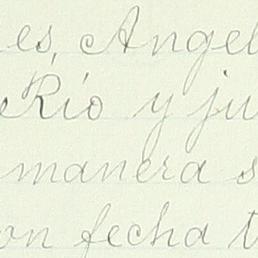 es, Angel
Río y ju
manera s
on fecha t